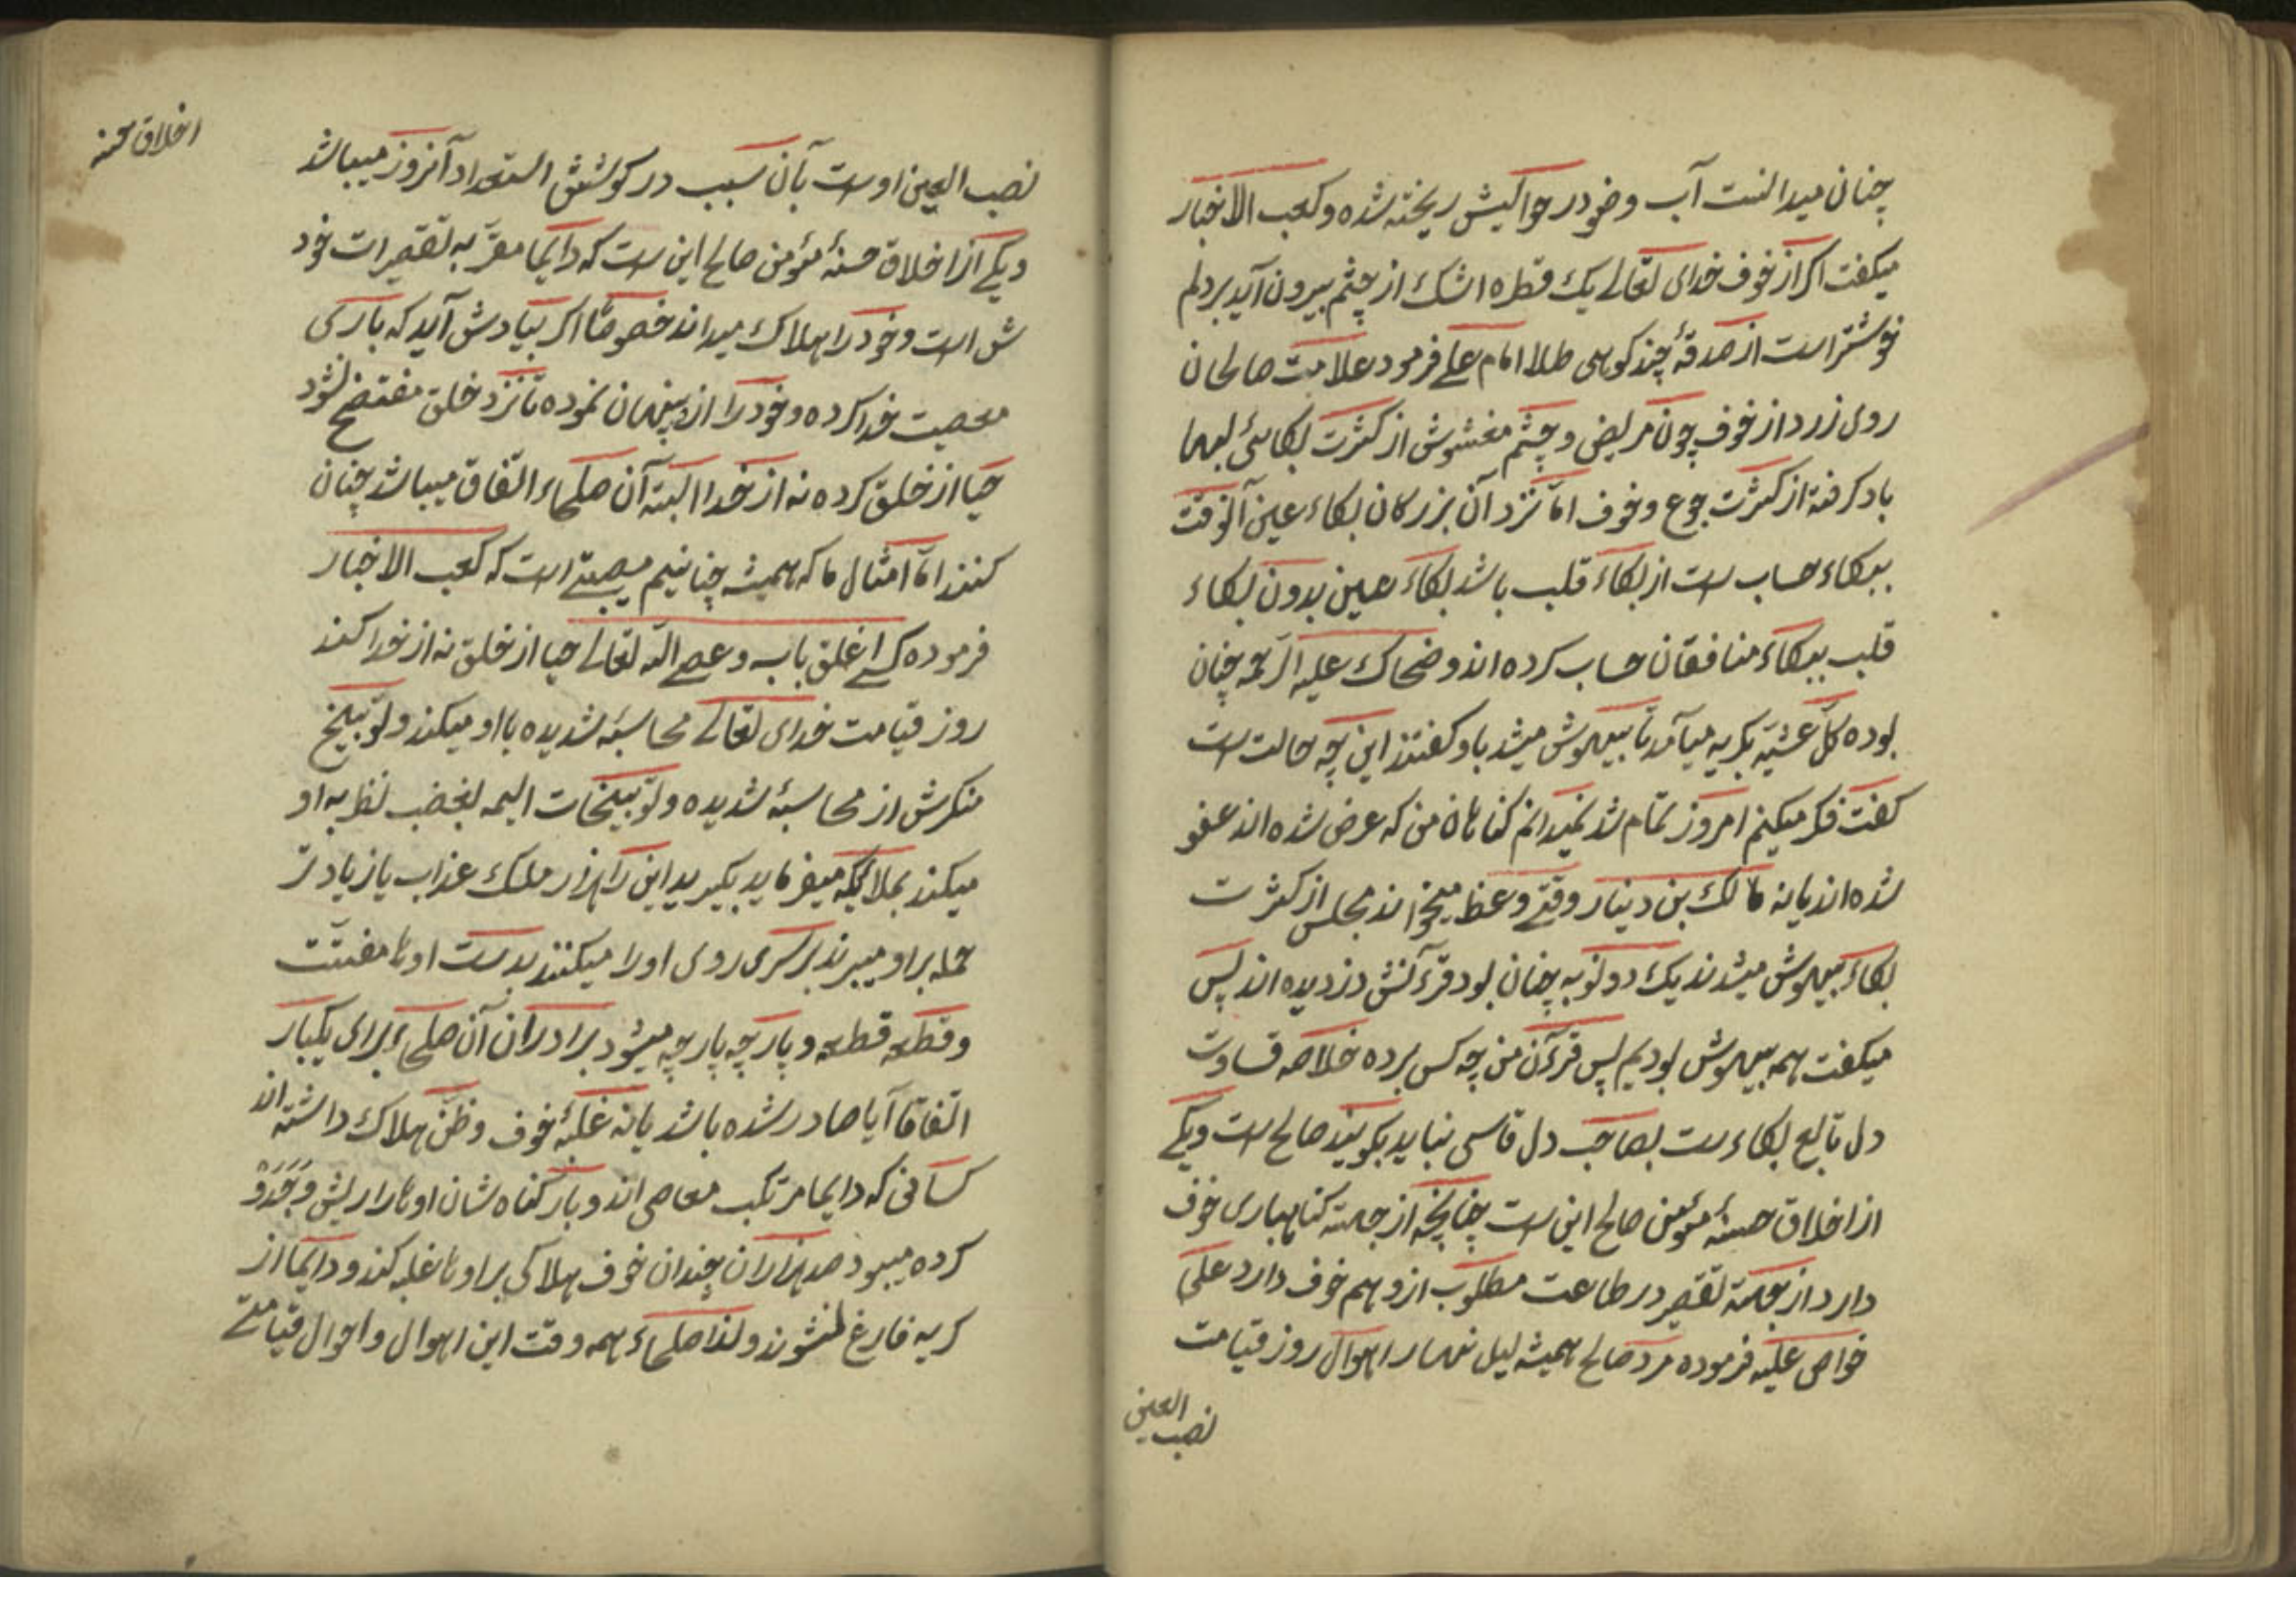 چنان میدانست آب وضو در حوالیش ریخته شده و کعب الاخبار
میکفت اکر از خوف خدای تعالی یک قطره اشک از چشم بیرون آید بر دلم
خوشتر است از صدقۀ چند کوهی طلا امام علی فرمود علامت صالحان
روی زرد از خوف چون مریض و چشم مغشوش از کثرت بکا سئ لبها
باد کرفته از کثرت جوع و خوف امّا نزد آن بزرکان بکاء عین آنوقت
ببکاء حساب ست از بکاء قلب باشد بکاء عین بدون بکاء
قلب ببکاء منافقان حساب کرده اند و ضحاک علیه الرّحمه چنان
بوده کلّ عشیّه بکریه میآمد تا بیهوش میشد باو کفتند این چه حالت ست
کفت فکر میکنم امروز تمام شد نمیدانم کناهان من که عرض شده اند عفو
شده اند یا نه مالک بن دینار وقتی وعظ میخواند مجلس از کثرت
بکاء بیهوش میشدند یک دو نوبه چنان بود قرآنش دزدیده اند پس
میکفت همه بیهوش بودیم پس قرءآن من چه کس برده خلاصه قساوت
دل تابع بکاء ست بصاحب دل قاسی نباید بکویند صالح ست و یکی
از اخلاق حسنۀ مؤمن صالح این ست چنانچه از جهته کناهباری خوف
دارد از جهتة تقصیر در طاعت مطلوب ازو هم خوف دارد علی
خواص علیه فرموده مرد صالح همیشه لیل نهار اهوال روز قیامت
نصب العین
اخلاق حسنه
نصب العین اوست بآن سبب در کوشش استعداد آنروز میباشد
و یکی از اخلاق حسنۀ مؤمن صالح این ست که دایما مقرّ به تقصیرات خود
ش است و خود را بهلاک میداند خصوصًا اکر بیادش آید که باری
معصیت خدا کرده و خود را از پنهان نموده تا نزد خلق مفتضح نشود
حیا از خلق کرده نه از خدا البتّه آن صلحاء اتّفاق میباشد چنان
کنند امّا امثال ما که همیشه چنانیم مصیبتی است که کعب الاخبار
فرموده کسی اغلق بابه و عصی الله تعالی حیا از خلق نه از خدا کند
روز قیامت خدای تعالی محاسبۀ شدیده با او میکند و توبیخ
منکرش از محاسبۀ شدیده و توبیخات الیمه بغضب نظر به او
میکند بملایکه میفرماید بکیرید این را هزار ملک عذاب یا زیادتر
حمله بر او میبرند بر سری روی او را میکنند بدست اوها مفتّت
و قطعه قطعه و پارچه پارچه میشود برادران آن صلحاء برای یکبار
اتّفاقا آیا صادر شده باشد یا نه غلبۀ خوف و ظنّ هلاک داشته اند
کسانی که دایما مرتکب معاصی اند و بار کناه شان اوها را ریش و
کرده میبود صد هزاران چندان خوف هلاکی بر اوها غلبه کند و دایما از
کریه فارغ نشوند و لذا صلحاء همه وقت این اهوال و احوال قیامتی